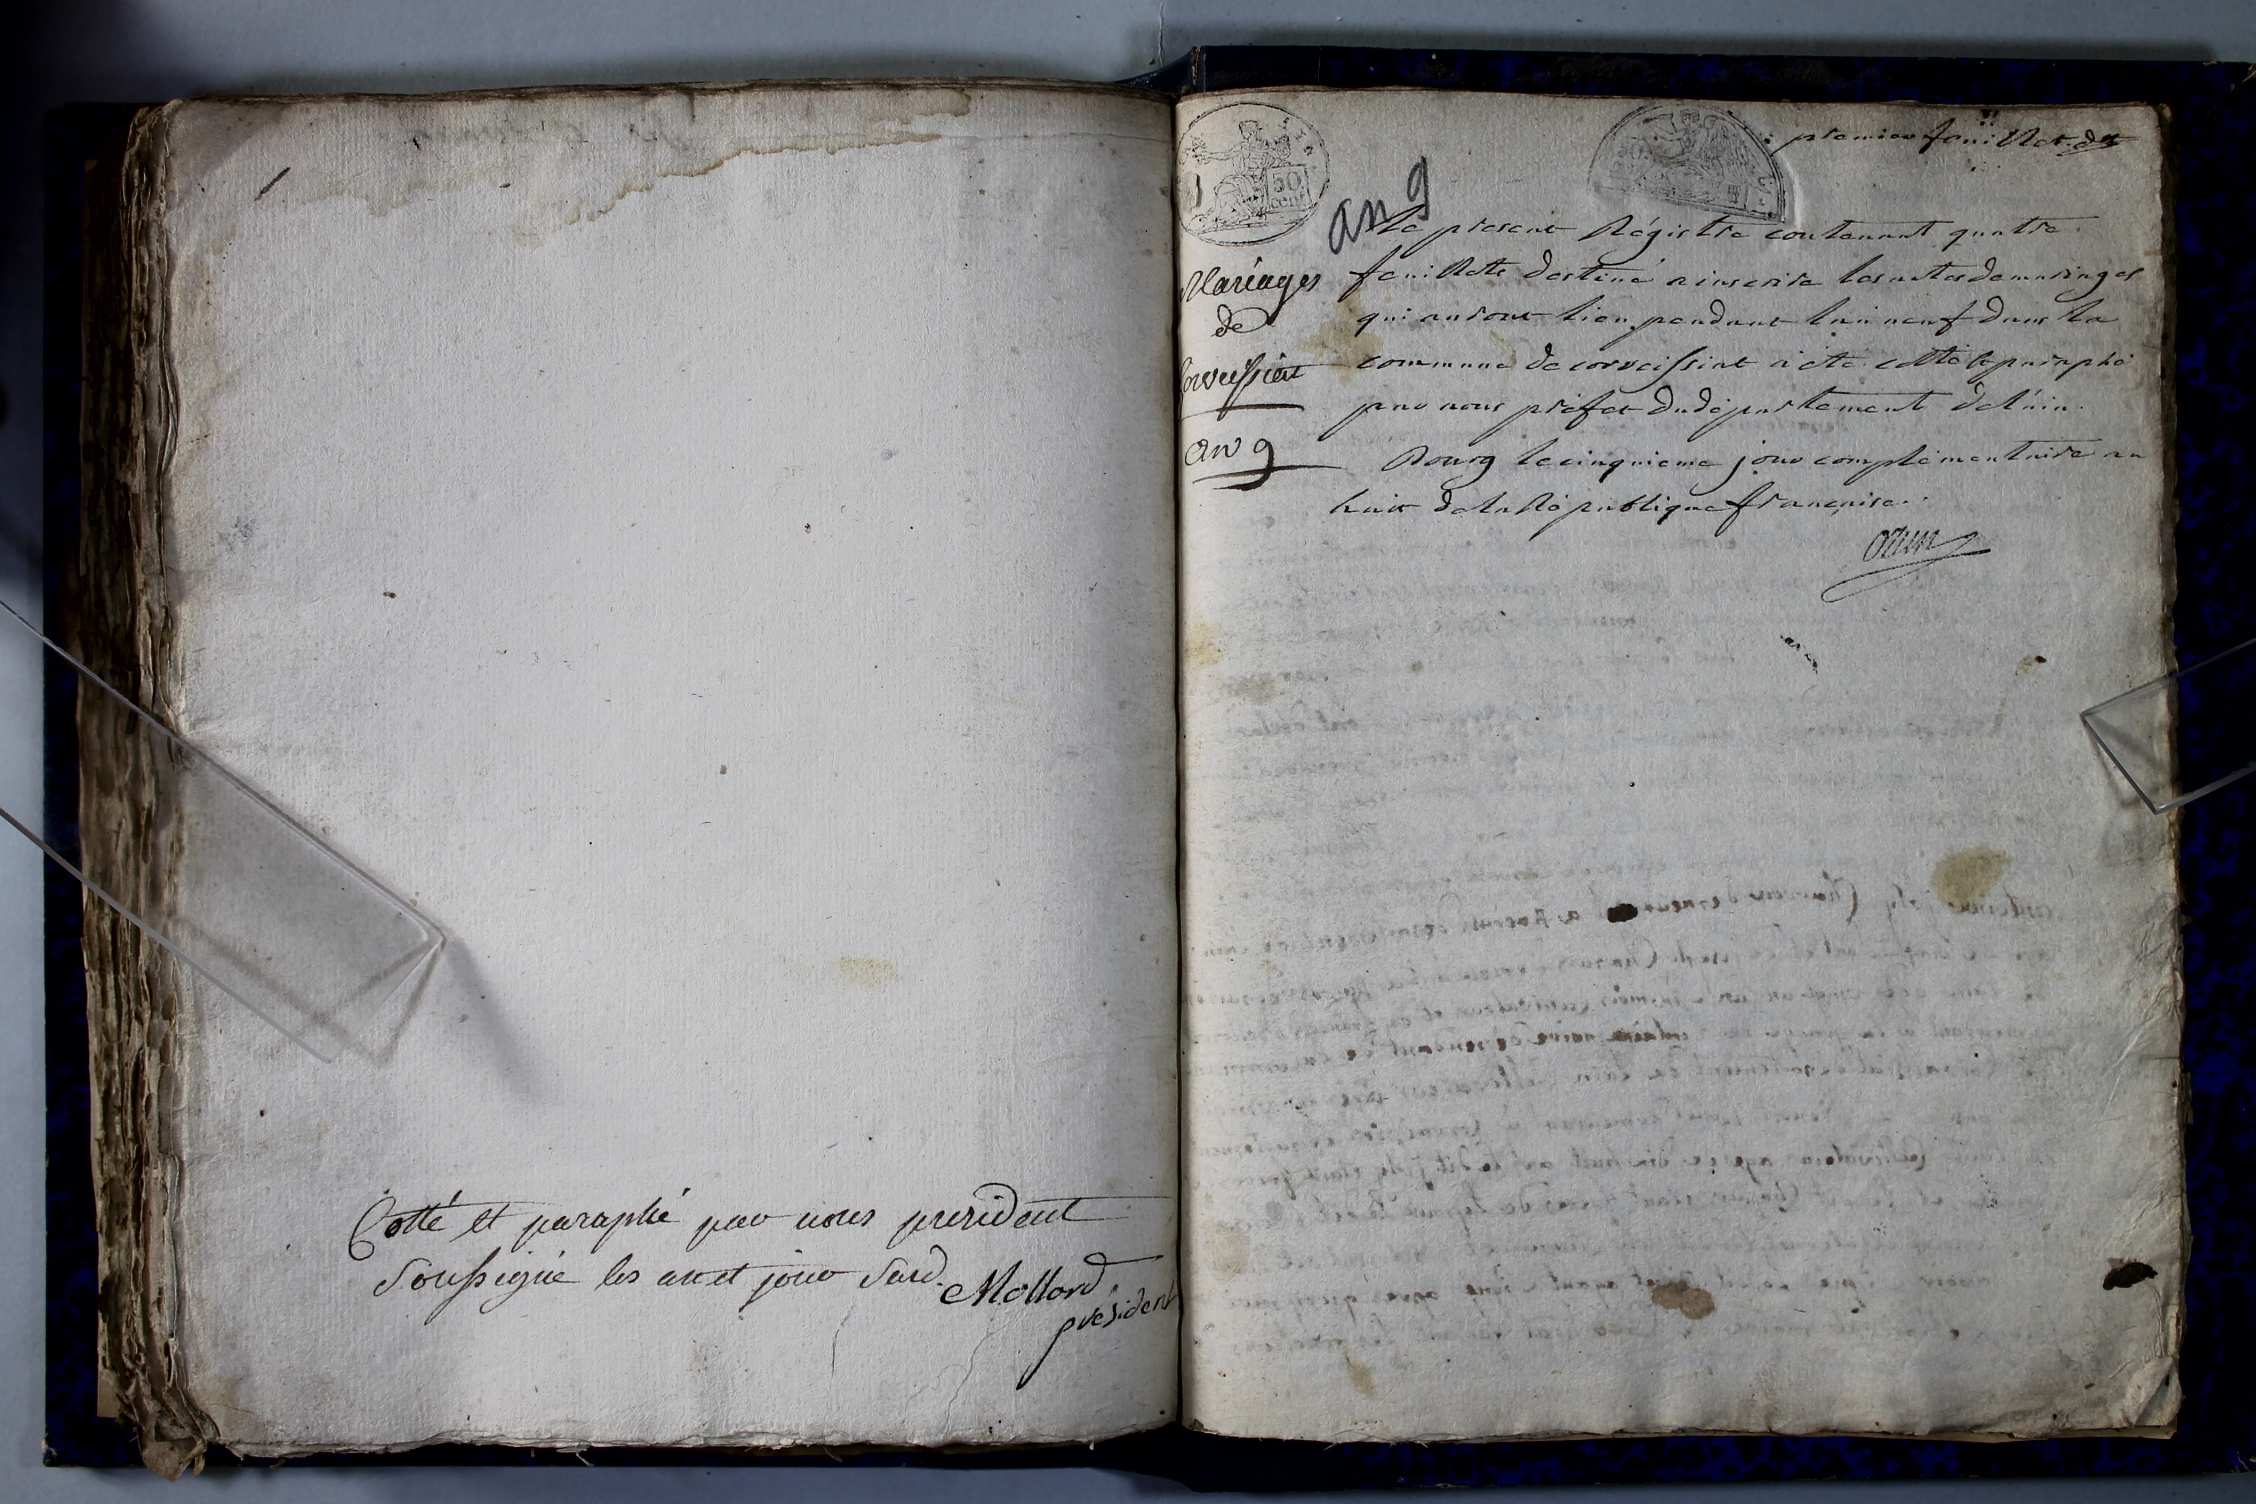 Cotté et paraphé par nous president
Soussigné les an et jour Susd.
Mollard
président
premier feuillet
50
cent
an 9
Mariages
de
Corveissiat
an 9
Le present Régistre contenant quatre
feuillets destiné a inscrire les actes de mariages
qui auront lieu pendant l'an neuf dans la
commune de corveissiat a été cotté et paraphé
par nous préfet du département de l'ain.
Bourg le cinquieme jour complémentaire an
huit de la République française.
Ozun